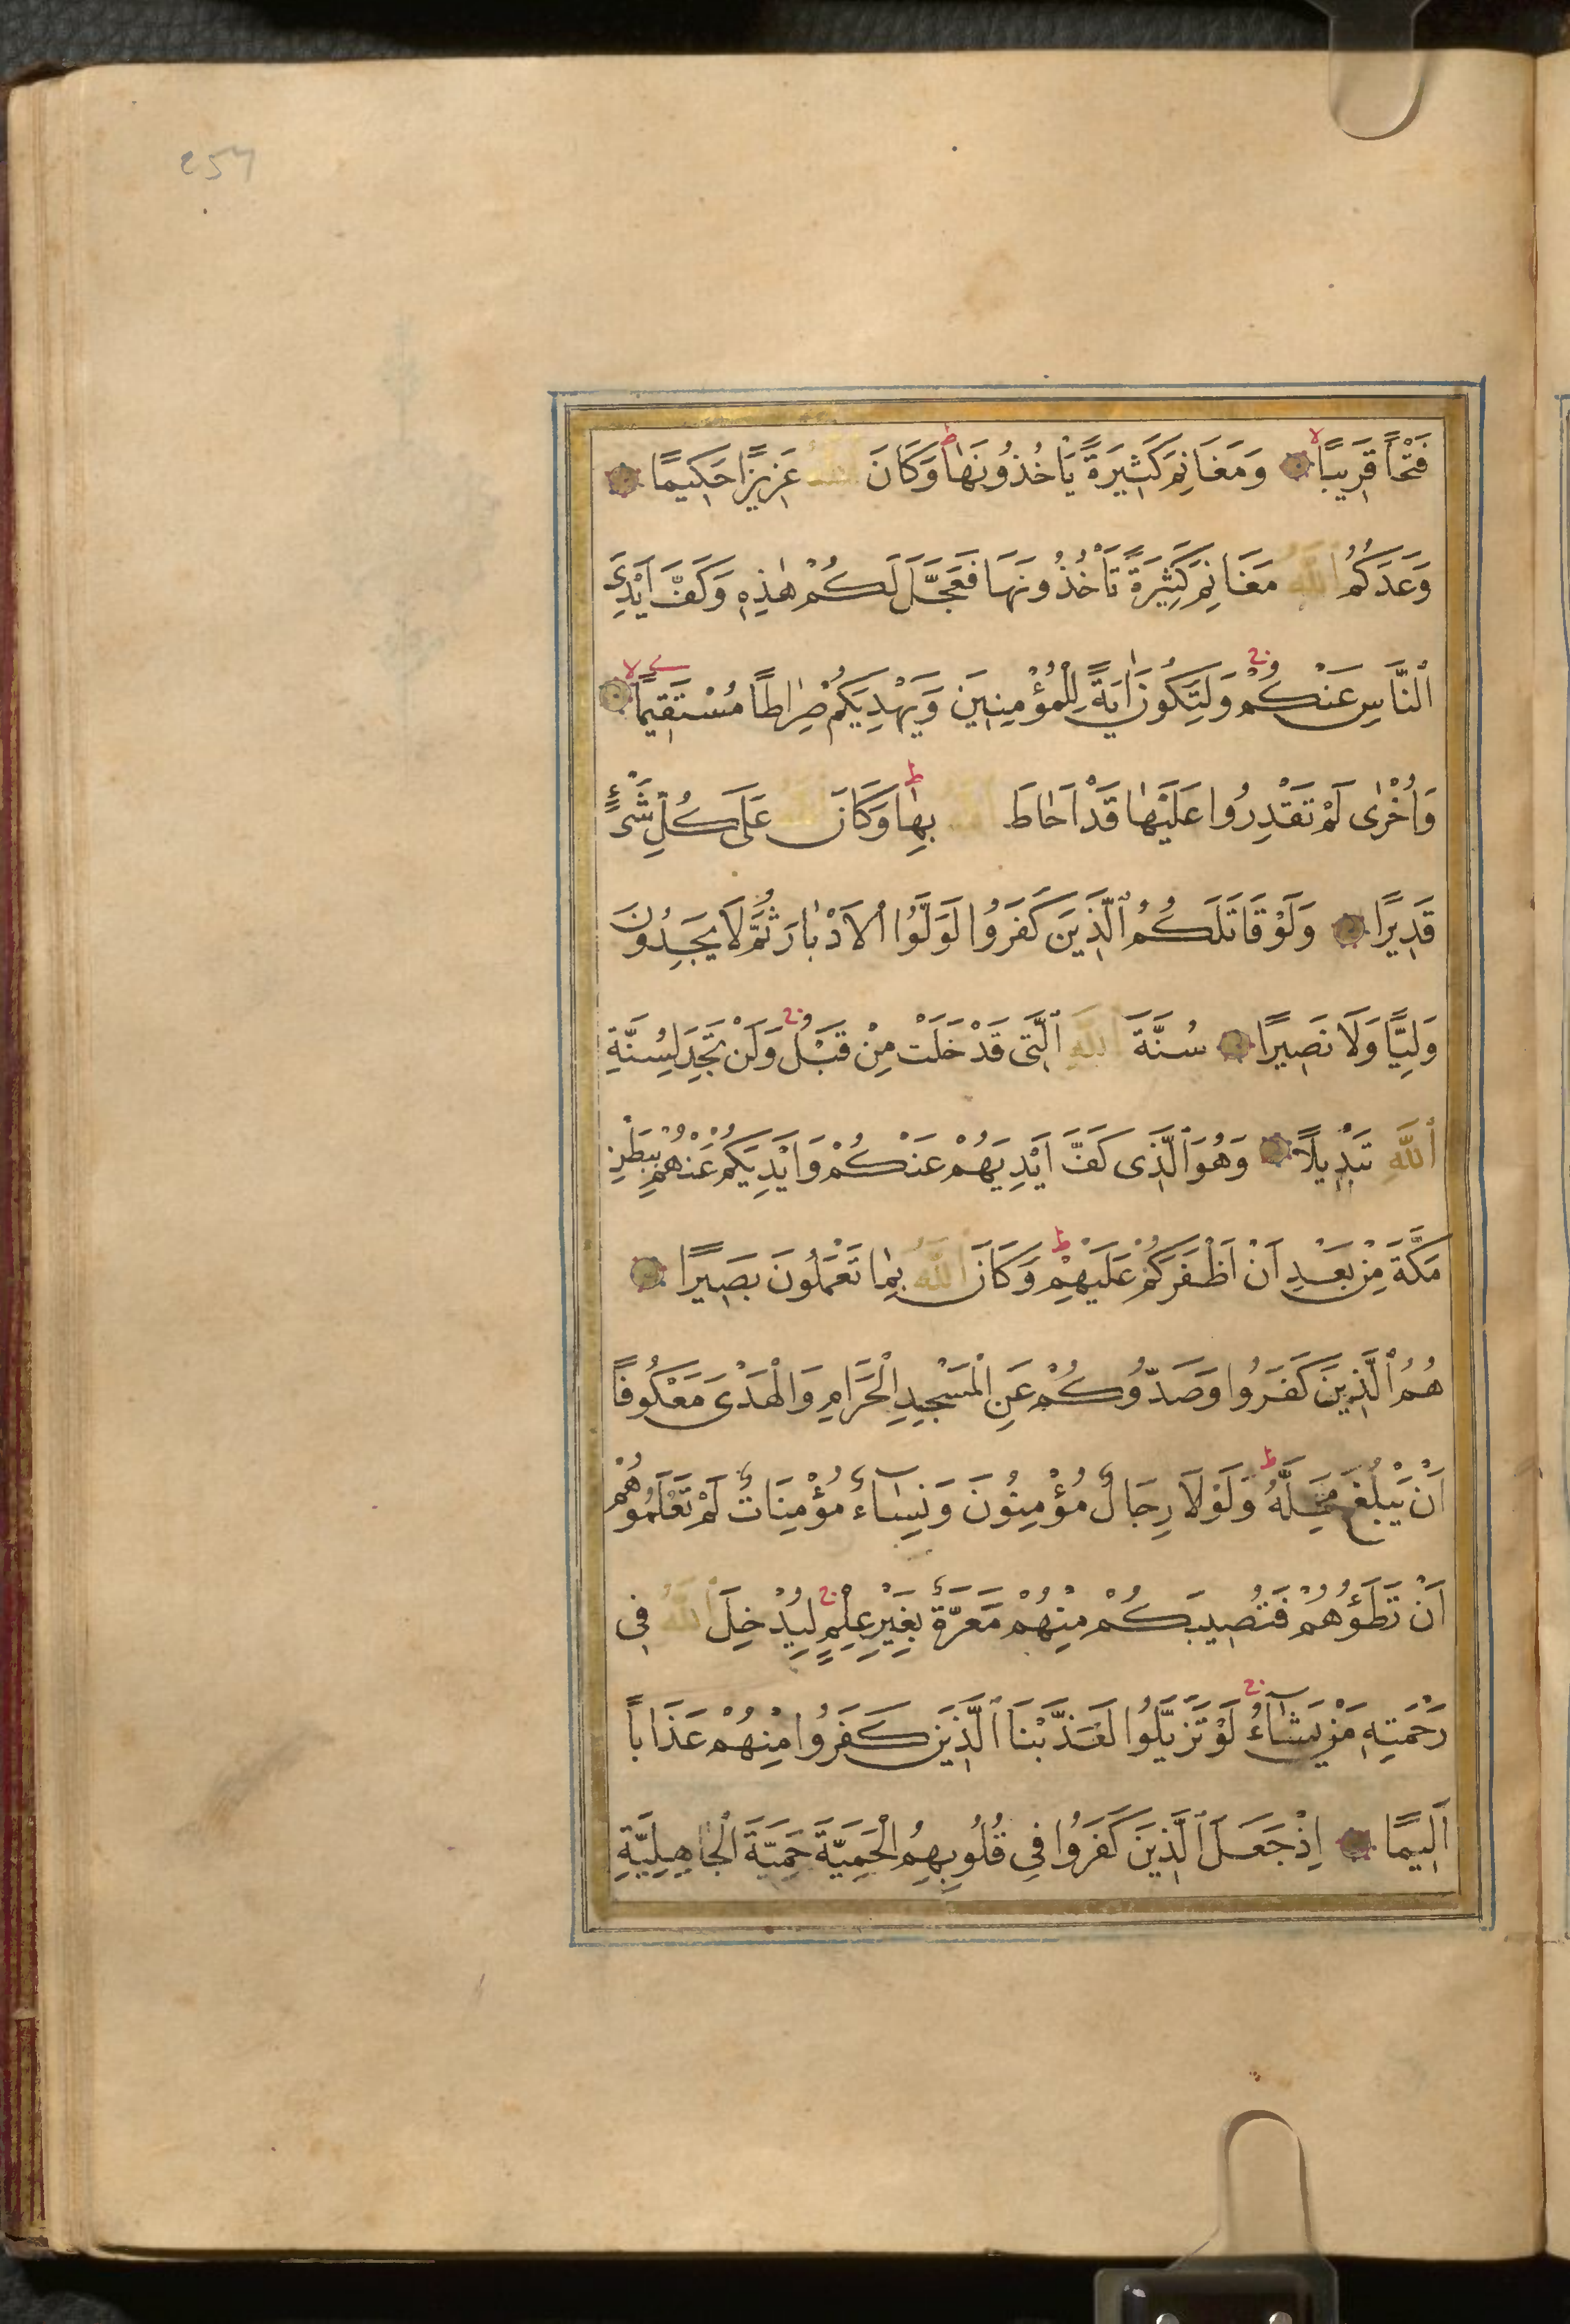 ٢٥٦
فَتْحًا قَرِيبًا وَمَغَانِمَ كَثِيرَةً يَأْخُذُونَهَا وَكَانَ اللَّهُ عَزِيزًا حَكِيمًا
وَعَدَكُمُ اللَّهُ مَغَانِمَ كَثِيرَةً تَأْخُذُونَهَا فَعَجَّلَ لَكُمْ هٰذِهِ وَكَفَّ اَيْدِيَ
النَّاسِ عَنْكُمْ وَلِتَكُونَ اٰيَةً لِلْمُؤْمِنِينَ وَيَهْدِيَكُمْ صِرَاطًا مُسْتَقِيمًا
وَاُخْرٰى لَمْ تَقْدِرُوا عَلَيْهَا قَدْ اَحَاطَ اللَّهُ بِهَا وَكَانَ اللَّهُ عَلَى كُلِّ شَيْءٍ
قَدِيرًا وَلَوْ قَاتَلَكُمُ الَّذِينَ كَفَرُوا لَوَلَّوُا الْاَدْبَارَ ثُمَّ لَا يَجِدُونَ
وَلِيًّا وَلَا نَصِيرًا سُنَّةَ اللَّهِ الَّتِى قَدْ خَلَتْ مِنْ قَبْلُ وَلَنْ تَجِدَ لِسُنَّةِ
اللَّهِ تَبْدِيلًا وَهُوَ الَّذِى كَفَّ اَيْدِيَهُمْ عَنْكُمْ وَاَيْدِيَكُمْ عَنْهُمْ بِبَطْنِ
مَكَّةَ مِنْ بَعْدِ اَنْ اَظْفَرَكُمْ عَلَيْهِمْ وَكَانَ اللَّهُ بِمَا تَعْمَلُونَ بَصِيرًا
هُمُ الَّذِينَ كَفَرُوا وَصَدُّوكُمْ عَنِ الْمَسْجِدِ الْحَرَامِ وَالْهَدْىَ مَعْكُوفًا
اَنْ يَبْلُغَ مَحِلَّهُ وَلَوْلَا رِجَالٌ مُؤْمِنُونَ وَنِسَاءٌ مُؤْمِنَاتٌ لَمْ تَعْلَمُوهُمْ
اَنْ تَطَؤُهُمْ فَتُصِيبَكُمْ مِنْهُمْ مَعَرَّةٌ بِغَيْرِ عِلْمٍ لِيُدْخِلَ اللَّهُ فِى
رَحْمَتِهِ مَنْ يَشَاءُ لَوْ تَزَيَّلُوا لَعَذَّبْنَا الَّذِينَ كَفَرُوا مِنْهُمْ عَذَابًا
اَلِيمًا اِذْ جَعَلَ الَّذِينَ كَفَرُوا فِى قُلُوبِهِمُ الْحَمِيَّةَ حَمِيَّةَ الْجَاهِلِيَّةِ